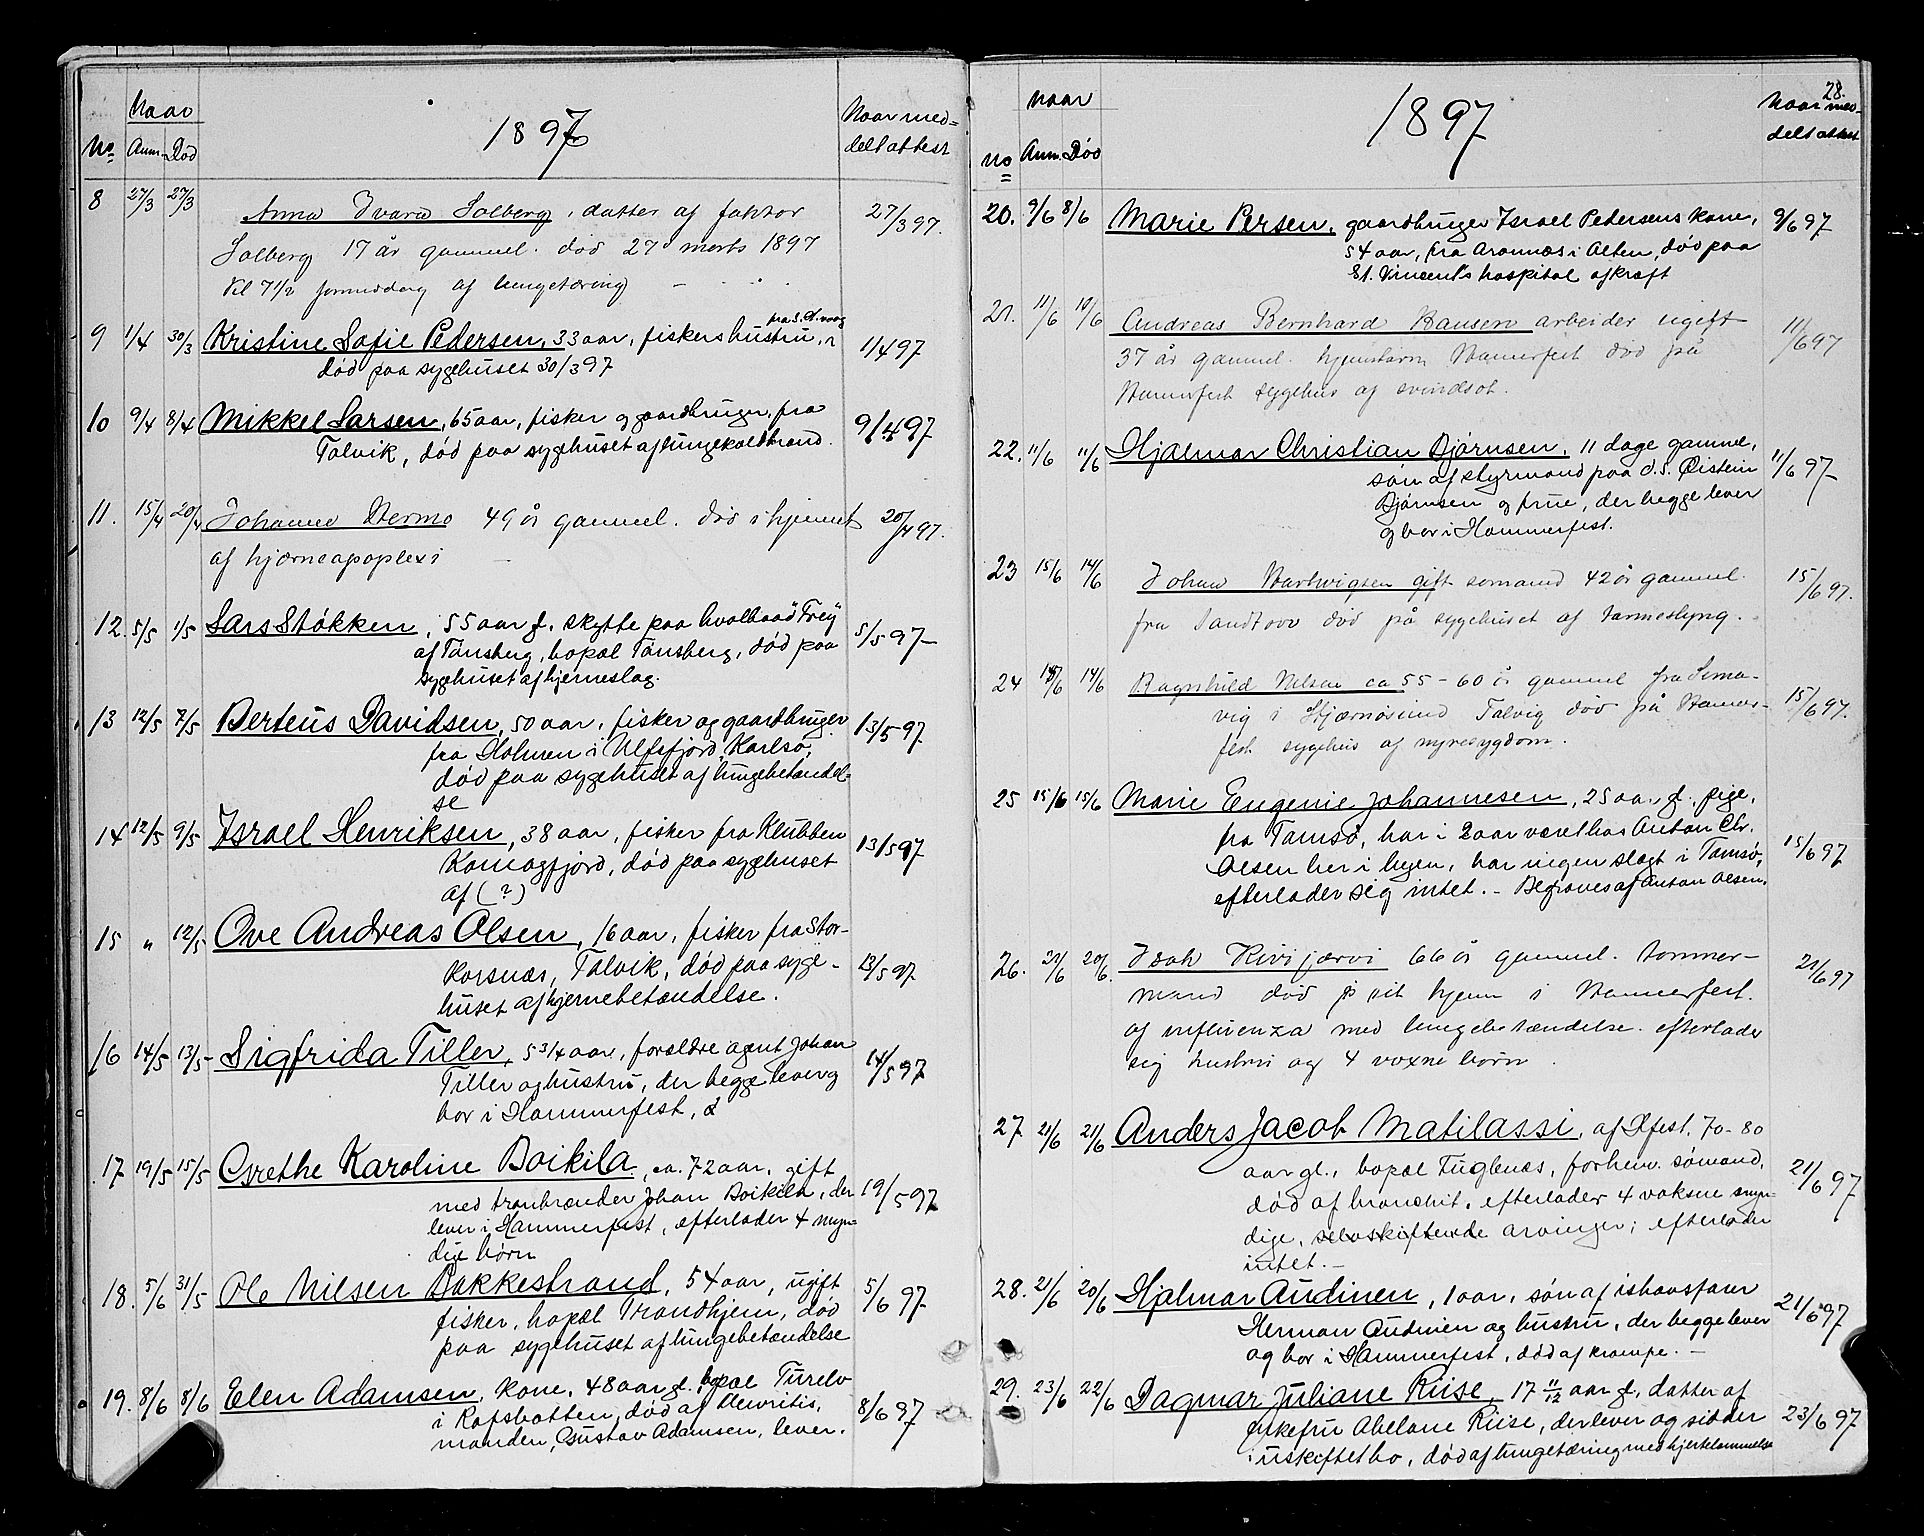 Naar
1897
Naar med=
delt attest
No Anm. Død
8 27/3 27/3 Anna Ovara Solberg, datter af faktor
27/3 97.
Solberg 17 år gammel. død 27 marts 1897
kl 7 1/2 formiddag af lungetæring
9 1/4 30/3 Kristine Sofie Pedersen, 33 aar, fiskers hustru,
død paa sygehuset 30/3 97
1/4 97
10 9/4 8/4 Mikkel Larsen, 65 aar, fisker og gaardbruger, fra
Talvik, død paa sygehuset af lungekoldbrand.
9/4 97
11. 15/4 20/4 Johanne Normo 49 år gammel. død i hjemmet
20/4 97.
af hjærneapoplexi
12. 5/5 1/5 Lars Støkken, 55 aar gl. skytte paa hvalbaad "Frey"
af Tönsberg, bopæl Tönsberg, død paa
sygehuset af hjerneslag.
5/5 97
13 12/5 7/5 Berteus Davidsen, 50 aar, fisker og gaardbruger
fra Holmen i Ulfsfjord, Karlsø,
død paa sygehuset af lungebetændel-
se
13/5 97
14 12/5 9/5 Israel Henriksen, 38 aar, fisker fra Klubben
Komagfjord, død paa sygehuset
af (?)
13/5 97
15 " 12/5 Ove Andreas Olsen, 16 aar, fisker fra Stor-
korsnæs, Talvik, død paa syge-
huset af hjernebetændelse.
13/5 97
16 14/5 13/5 Sigfrida Tiller, 5 3/4 aar, forældre agent Johan
Tiller og hustru, der begge lever og
bor i Hammerfest,
14/5 97
17 19/5 15/5 Grethe Karoline Boikila, ca. 72 aar, gift
med tranbrænder Johan Boikila, der
lever i Hammerfest, efterlader 4 myn-
dige børn
19/5 97
18. 5/6 31/5 Ole Nilsen Bakkestrand, 54 aar, ugift
fisker, bopæl Trondhjem, død
paa sygehuset af lungebetændelse
5/6 97
19. 8/6 8/6 Elen Adamsen, kone, 48 aar gl. bopæl Turelv
i Rafsbotten, død af Nevritis,
manden, Gustav Adamsen, lever.
8/6 97
28.
Naar
1897
Naar med-
delt attest
No Anm. Død
20. 9/6 8/6 Marie Persen, gaardbruger Israel Pedersens kone,
54 aar, fra Aronnæs i Alten, død paa
St. Vincent's hospital af kræft
9/6 97
21. 11/6 10/6 Andreas Bernhard Hansen arbeider ugift
37 år gammel. hjemstavn Hammerfest død på
Hammerfest sygehus af svindsot.
11/6 97
22. 11/6 11/6 Hjalmar Christian Bjørnsen, 11 dage gammel,
søn af styrmand paa d.s. Øistein
Bjørnsen og frue, der begge lever
og bor i Hammerfest.
11/6 97
23 15/6 14/6 Johan Hartvigsen gift sømand 42 år gammel.
fra Sandtorv død på sygehuset af tarmeslyng.
15/6 97.
24 14/6 Ragnhild Nilsen ca 55-60 år gammel fra Sima-
vig i Stjærnøsund Talvig død på Hammer-
fest sygehus af nyresygdom.
15/6 97.
25 15/6 15/6 Marie Eugenie Johannesen, 25 aar gl. pige,
fra Tamsø, har i 2 aar været hos Anton Chr.
Olsen her i byen, har ingen slægt i Tamsø,
efterlader sig intet. - Begraves af Anton Olsen.
15/6 97
26. 21/6 20/6. Isak Kivijærvi 66 år gammel. tømmer-
mand død på sit hjem i Hammerfest.
af influenza med lungebetændelse. efterlader
sig hustru og 4 voxne børn.
21/6 97
27 21/6 21/6 Anders Jacob Matilassi, af Hfest, 70-80
aar gl., bopæl Fuglenæs, forhenv. sømand,
død af bronchit. efterlader 4 voksne myn-
dige, selvskiftende arvinger; efterlader
intet.
21/6 97
28. 21/6 20/6 Hjalmar Audinen, 1 aar, søn af ishavsfarer
Herman Audinen og hustru, der begge lever
og bor i Hammerfest, død af krampe.
21/6 97
29. 23/6 22/6 Dagmar Juliane Riise, 17 11/12 aar gl, datter af
Enkefru Abelone Riise, der lever og sidder
i uskiftet bo, død af lungetæring med hjertelammelse
23/6 97